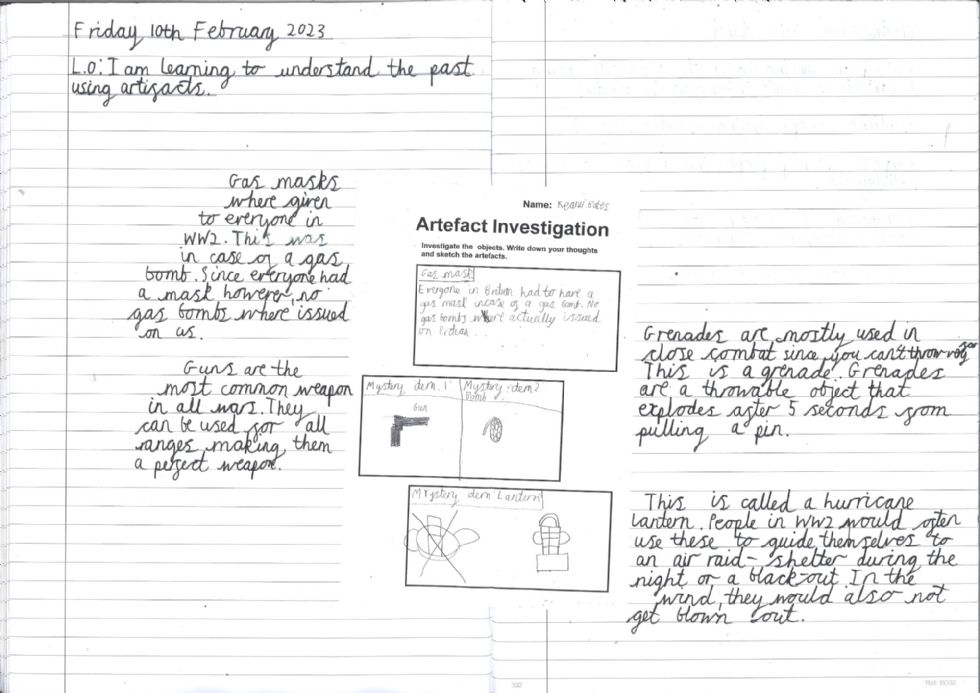 Friday 10th February 2023
L.O: I am learning to understand the past
using artifacts.
Gas masks
where given
to everyone in
WW2. This was
in case of a gas
bomb. Since everyone had
a mask however, no
gas bombs where issued
on us.
Guns are the
most common weapon
in all wars. They
can be used for all
ranges, making them
a perfect weapon.
Name:
Artefact Investigation
Investigate the objects. Write down your thoughts
and sketch the artefacts.
Gas mask
Everyone in had to have a
gas mask incase of a gas bomb. No
gas bombs where actually issued
on
Mystery item 1:
Gun
Mystery item 2
Bomb
Mrystery item Lantern
Grenades are mostly used in
close combat since you can't throw far
This is a grenade. Grenades
are a throwable object that
explodes after 5 seconds from
pulling a pin.
This is called a hurricane
lantern. People in WW2 would often
use these to guide themselves to
an air raid-shelter during the
night or a black-out. In the
wind, they would also not
get blown out.